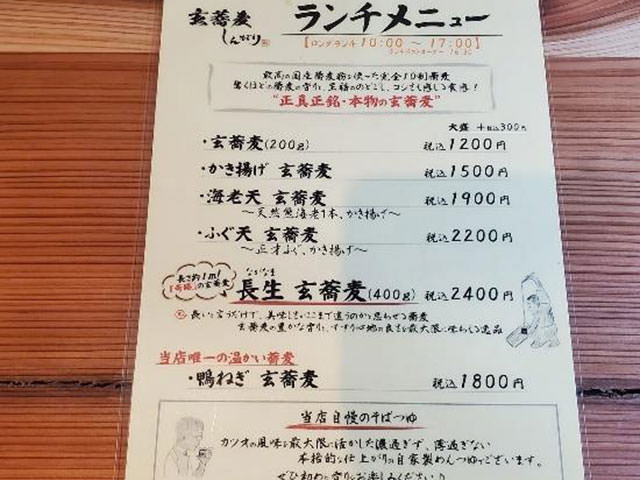 玄蕎麦
ランチメニュー
【ロングランチ 10:00 ～ 17:00】
最高の国産蕎麦粉を使った完全10割蕎麦
驚くほどの蕎麦の香り、至福ののどごし、コシすら感じる食感!
“正真正銘・本物の玄蕎麦”
大盛 +税込300円
・玄蕎麦(200g) 税込1200円
・かき揚げ 玄蕎麦 税込1500円
・海老天 玄蕎麦 税込1900円
～天然魚海老1本、かき揚げ～
・ふぐ天 玄蕎麦 税込2200円
～正才ふぐ、かき揚げ～
長さ約1m!
「奇跡」の玄蕎麦
ながなま
長生 玄蕎麦(400g) 税込2400円
長いと言うだけで、美味しさはここまで違うのかと思わせる蕎麦
玄蕎麦の豊かな香り、すすり心地の良さを最大限に味わえる逸品
当店唯一の温かい蕎麦
・鴨ねぎ 玄蕎麦 税込1800円
当店自慢のそばつゆ
カツオの風味を最大限に活かした濃過ぎず、薄過ぎない
本格的な仕上がりの自家製めんつゆでございます。